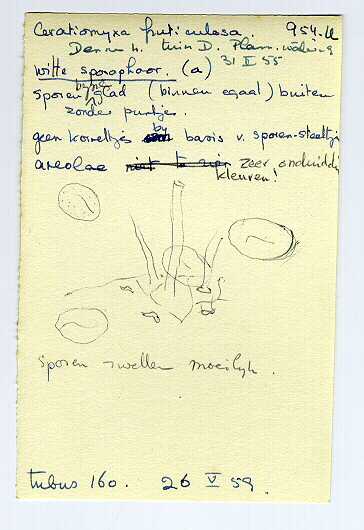 Ceratiomyxa fruticulosa. 954.
Denne h. tuin D.
31 V 55
witte sporophoor. (a)
sporen bijna glad (binnen egaal) buiten
zonder puntjes.
geen korreltjes by basis v. sporen-steeltje
areolae niet te zien zeer onduidelijk
kleuren!
sporen zwellen moeilijk.
tubus 160. 26 V 59.